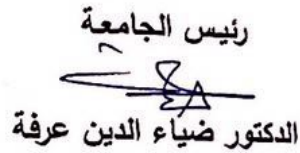 رئيس الجامعة
الدكتور ضياء الدين عرفة